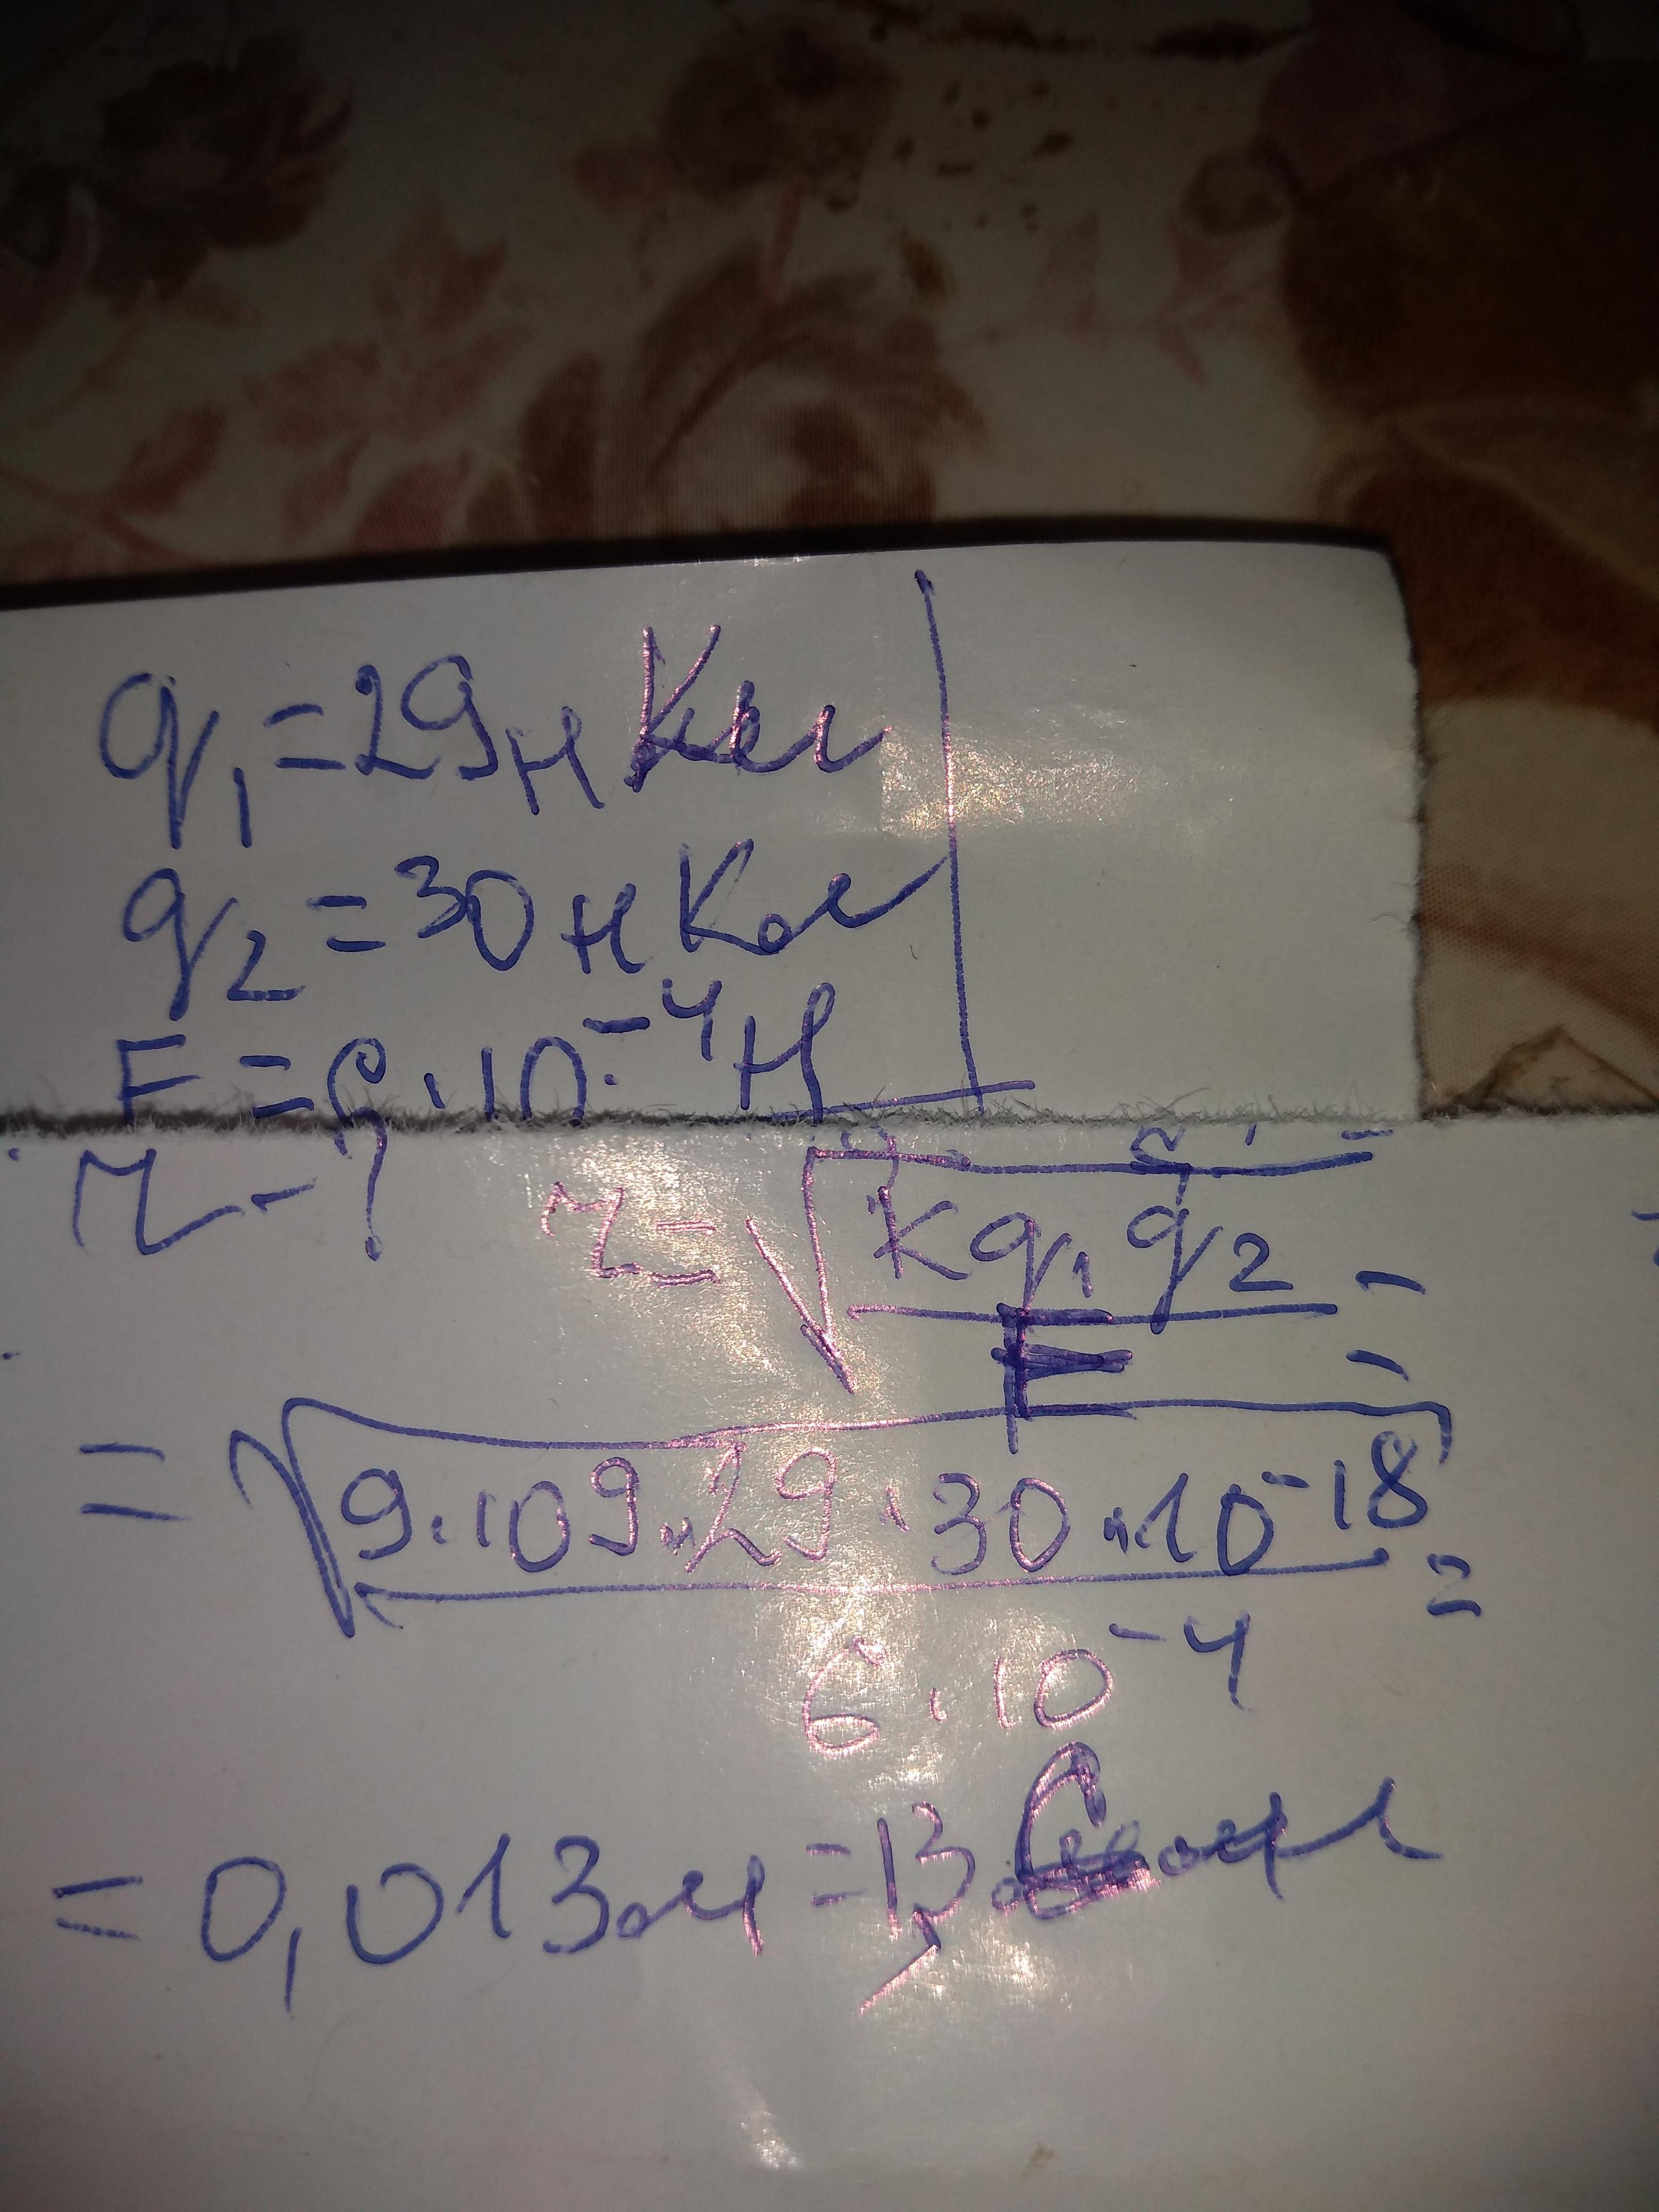 q₁ = 29 нКл
q₂ = 30 н Кл
F = 6·10⁻⁴ Н
r - ?
r = √(kq₁q₂/F) =
= √(9·10⁹·29·30·10⁻¹⁸/6·10⁻⁴) =
= 0,013 м = 13